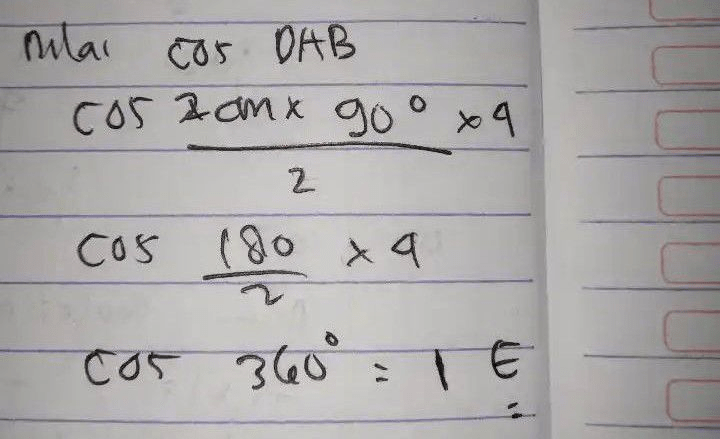 nilai cos DAB
cos 2cm x 90° x 4
2
cos 180 x 4
2
cos 360° = 1 E